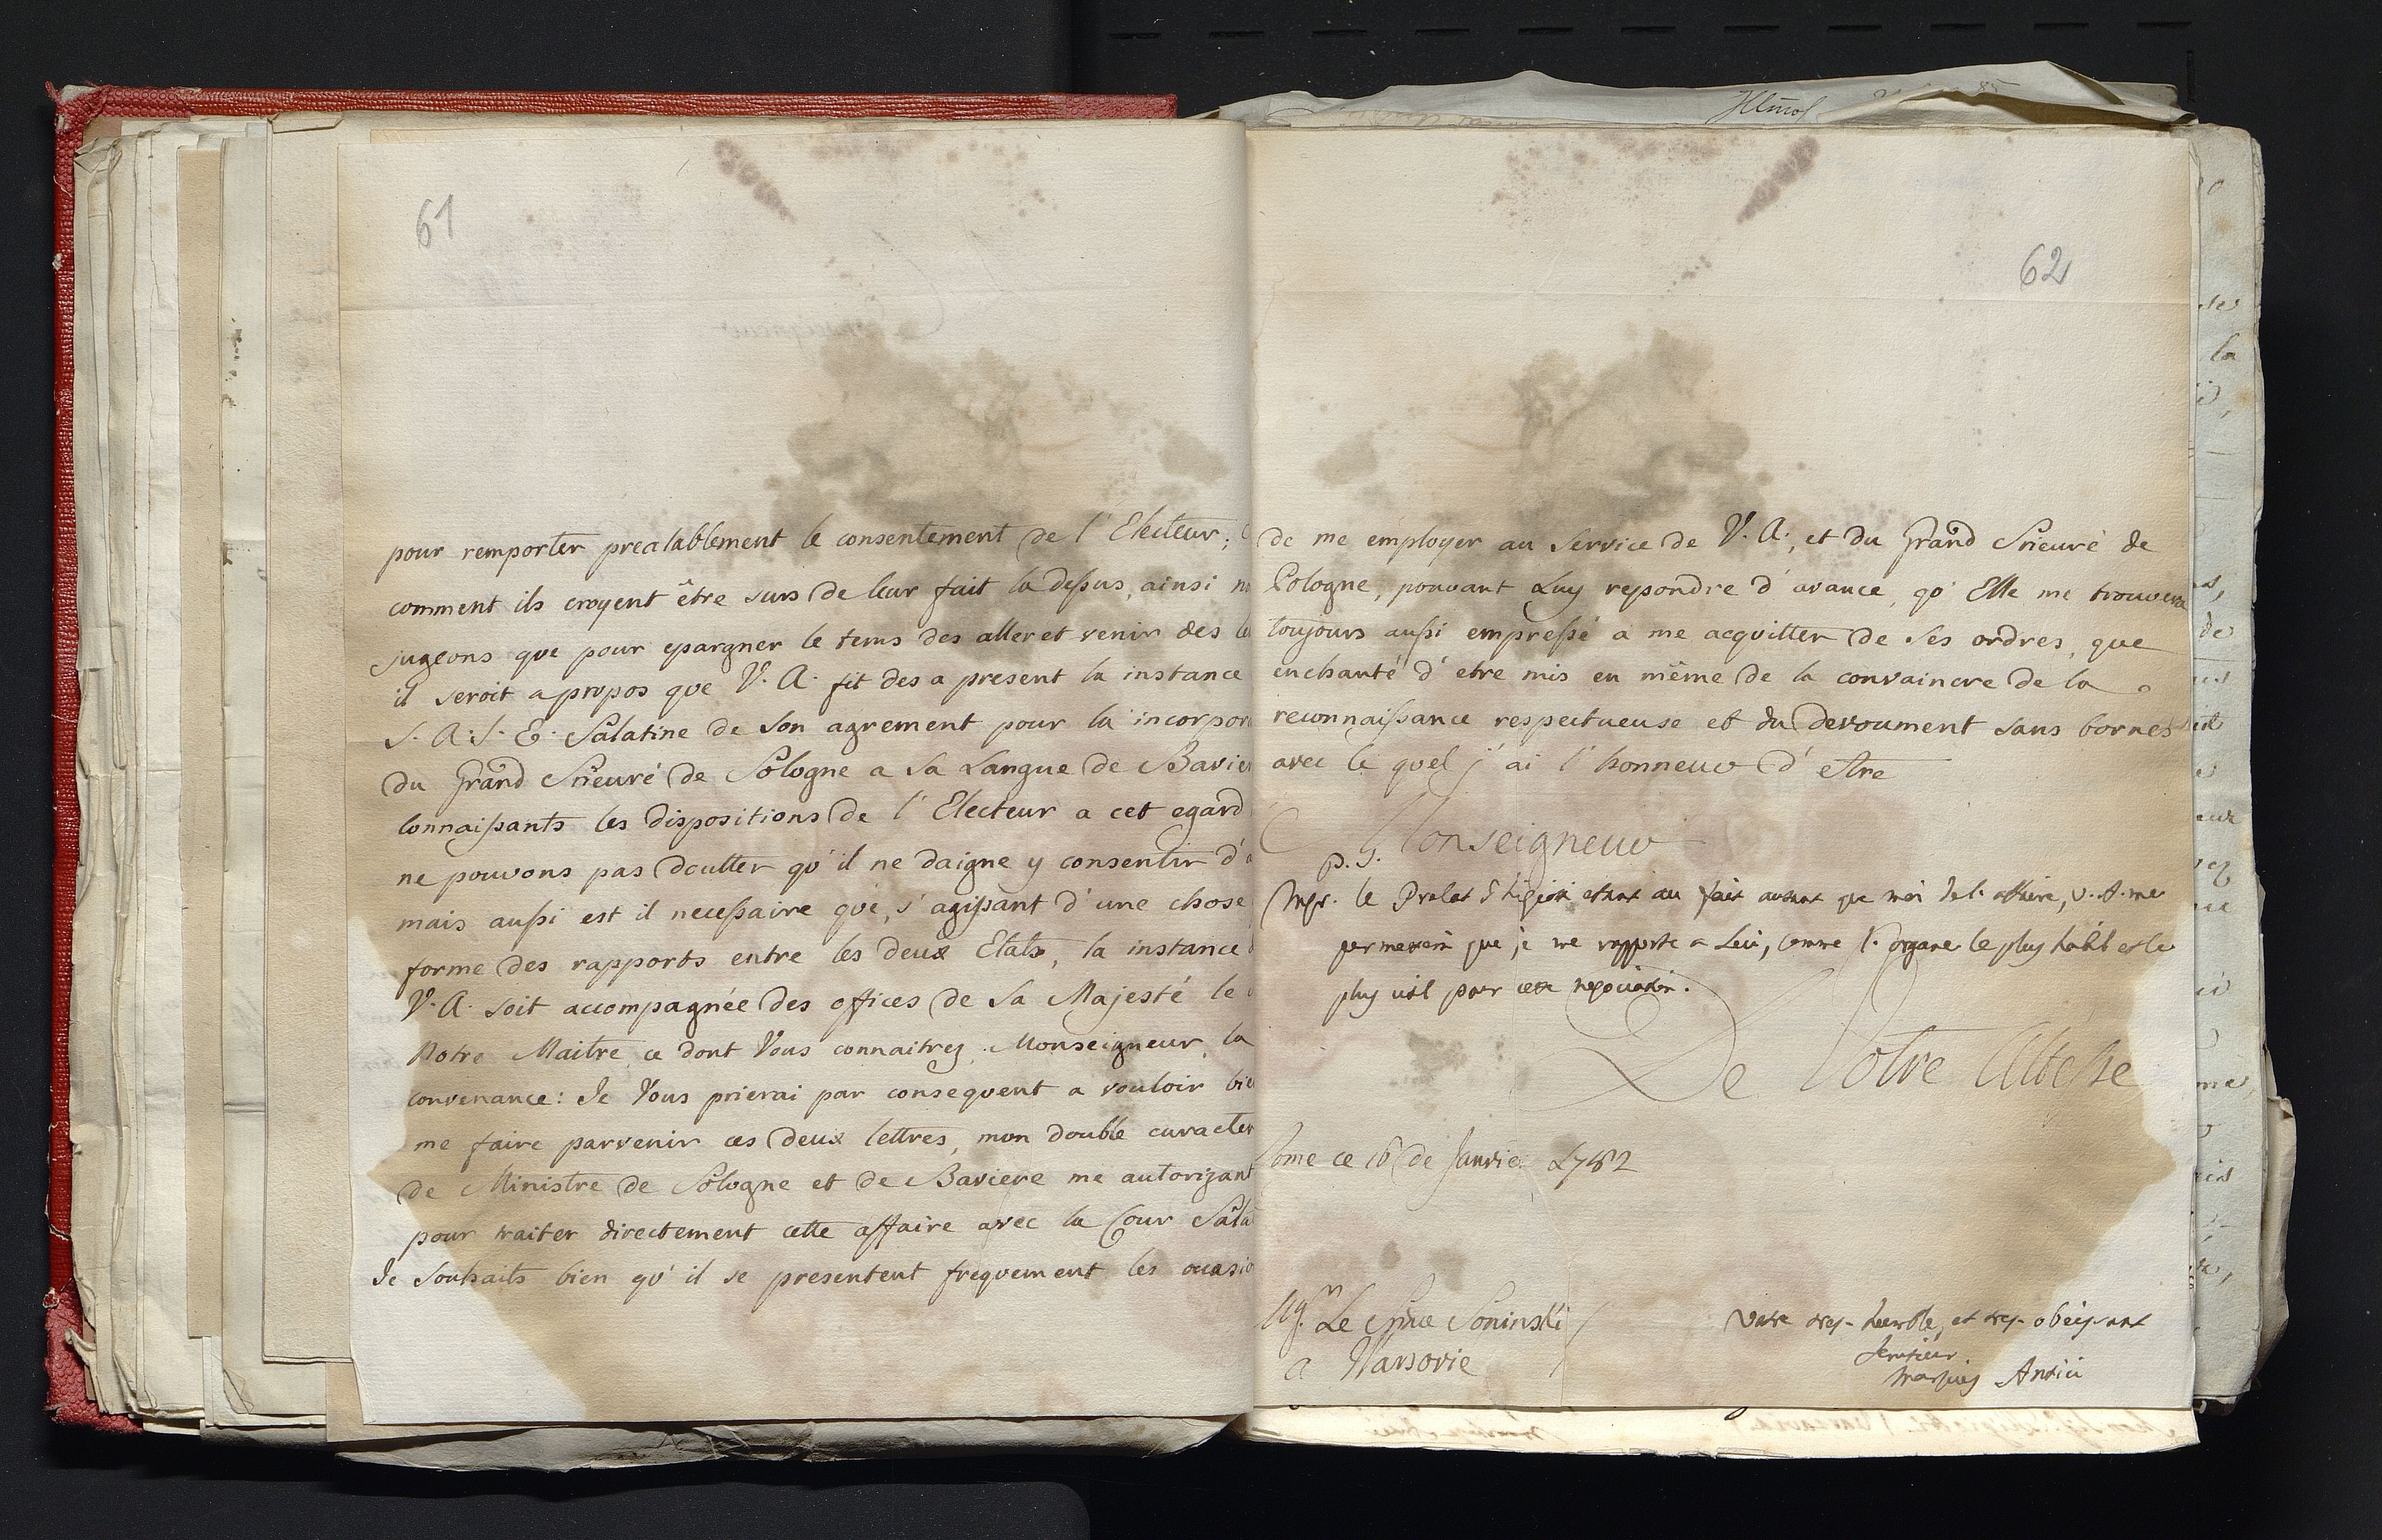 61
pour remporter prealablement le consentement de l'Electeur;
comment ils croyent être surs de leur fait la dessus, ainsi
jugeons que pour epargner le tems des aller et venir des
il seroit apropos que V. A. fit des a present la instance
S. A. S. E. Palatine de Son agrement pour la incorpor
du Grand Prieuré de Pologne a Sa Langue de Bavier
Connaissants les dispositions de l'Electeur a cet egard
ne pouvons pas doutter qu'il ne daigne y consentir d'
mais aussi est il necessaire que, s'agissant d'une chose
forme des rapports entre les deux Etats, la instance
V. A. soit accompagnée des offices de Sa Majesté le
Notre Maitre, ce dont Vous connaitrez, Monseigneur, la
convenance: Je Vous prierai par consequent a vouloir bie
me faire parvenir ces deux lettres, mon double caracter
de Ministre de Pologne et de Baviere me autorizant
pour traiter directement cette affaire avec la Cour Pala
Je Souhaits bien qu'il se presentent frequement les ocasio
62
de me employer au Service de V. A., et du Grand Prieuré de
Pologne, pouvant Luy repondre d'avance, qu'Elle me trouvera
toujours aussi empressé a me acquitter de Ses ordres, que
enchanté d'etre mis en même de la convaincre de la
reconnaissance respectueuse et du devoument sans bornes
avec le quel j'ai l'honneur d'estre
Monseigneur
P. S.
Mgr. le Prelat Ghigiotti etant au fait autant que moi de l'affaire, V. A. me
permettra que je me rapporte a Lui, comme l'organe le plus habil et le
plus util pour cette negociation.
De Votre Altesse
Rome ce 16 de Janvier 1782
Mgr. Le Prince Poninski
a Varsovie
Votre tres-humble, et tres-obeissant
Serviteur
Marquis Antici